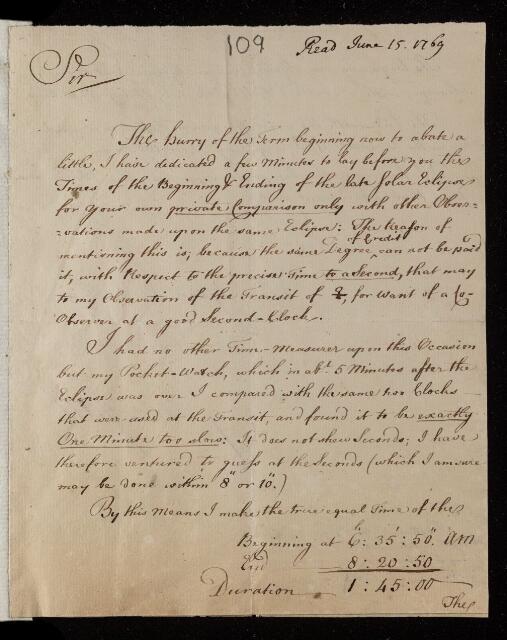 109
Read June 15. 1769
Sir
The hurry of the Term beginning now to abate a
little, I have dedicated a few Minutes to lay before you the
Times of the Beginning & Ending of the late Solar Eclipse
for your own private Comparison only with other Obser-
=vations made upon the same Eclipse: The Reason of
mentioning this is; because the same Degree of Credit can not be paid
it, with Respect to the precise Time to a Second, that may
to my Observation of the Transit of ♀, for want of a Co-
Observer at a good Second-Clock.
I had no other Time-Measurer upon this Occasion
but my Pocket-Watch, which in abt. 5 Minutes after the
Eclipse was over I compared with the same two Clocks
that were used at the Transit, and found it to be exactly
One Minute too slow: It does not shew Seconds; I have
therefore ventured to guess at the Seconds (which I am sure
may be done within 8" or 10".)
By this Means I make the true equal Time of the
Beginning at 6h: 35': 50". AM
End 8: 20: 50
Duration 1: 45: 00
The